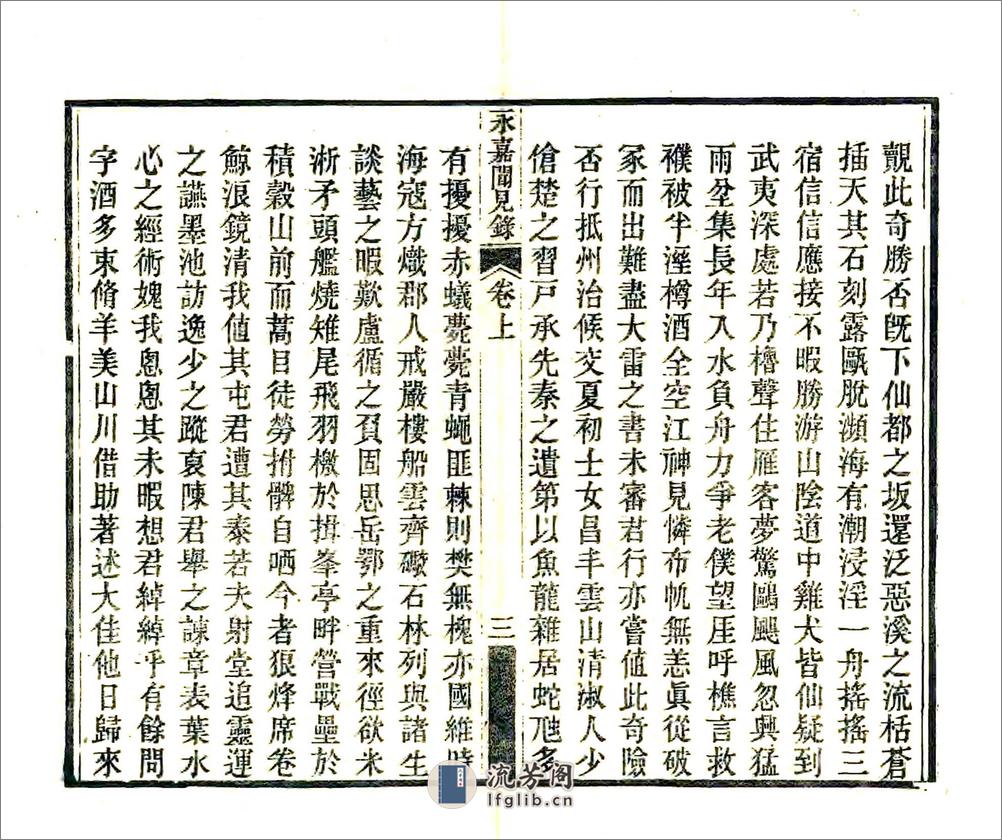 觀此奇勝否旣下仙都之坂還泛惡溪之流栝蒼
插天其石刻露甌脫瀕海有潮浸淫一舟搖搖三
宿信信應接不暇勝游山陰道中雞犬皆仙疑到
武夷深處若乃櫓聲住雁客夢驚鷗颶風忽興猛
雨坌集長年入水負舟力爭老僕望厓呼樵言救
襆被半溼樽酒全空江神見憐布帆無恙眞從破
冢而出難盡大雷之書未審君行亦嘗値此奇險
否行抵州治候交夏初士女昌丰雲山淸淑人少
傖楚之習戸承先秦之遺第以魚龍雜居蛇虺多
永嘉聞見錄
卷上
三
有擾擾赤蟻薨薨青蠅匪棘則樊無槐亦國維時
海寇方熾郡人戒嚴樓船雲齊礮石林列與諸生
談藝之暇歎盧循之負固思岳鄂之重來徑欲米
淅矛頭艦燒雉尾飛羽檄於揖峯亭畔營戰壘於
積穀山前而蒿目徒勞拊髀自哂今者狼烽席卷
鯨浪鏡清我値其屯君遭其泰若夫射堂追靈運
之讌墨池訪逸少之蹤哀陳君舉之諫章表葉水
心之經術媿我悤悤其未暇想君綽綽乎有餘問
字酒多束脩羊美山川借助著述大佳他日歸來
流芳阁
lfglib.cn